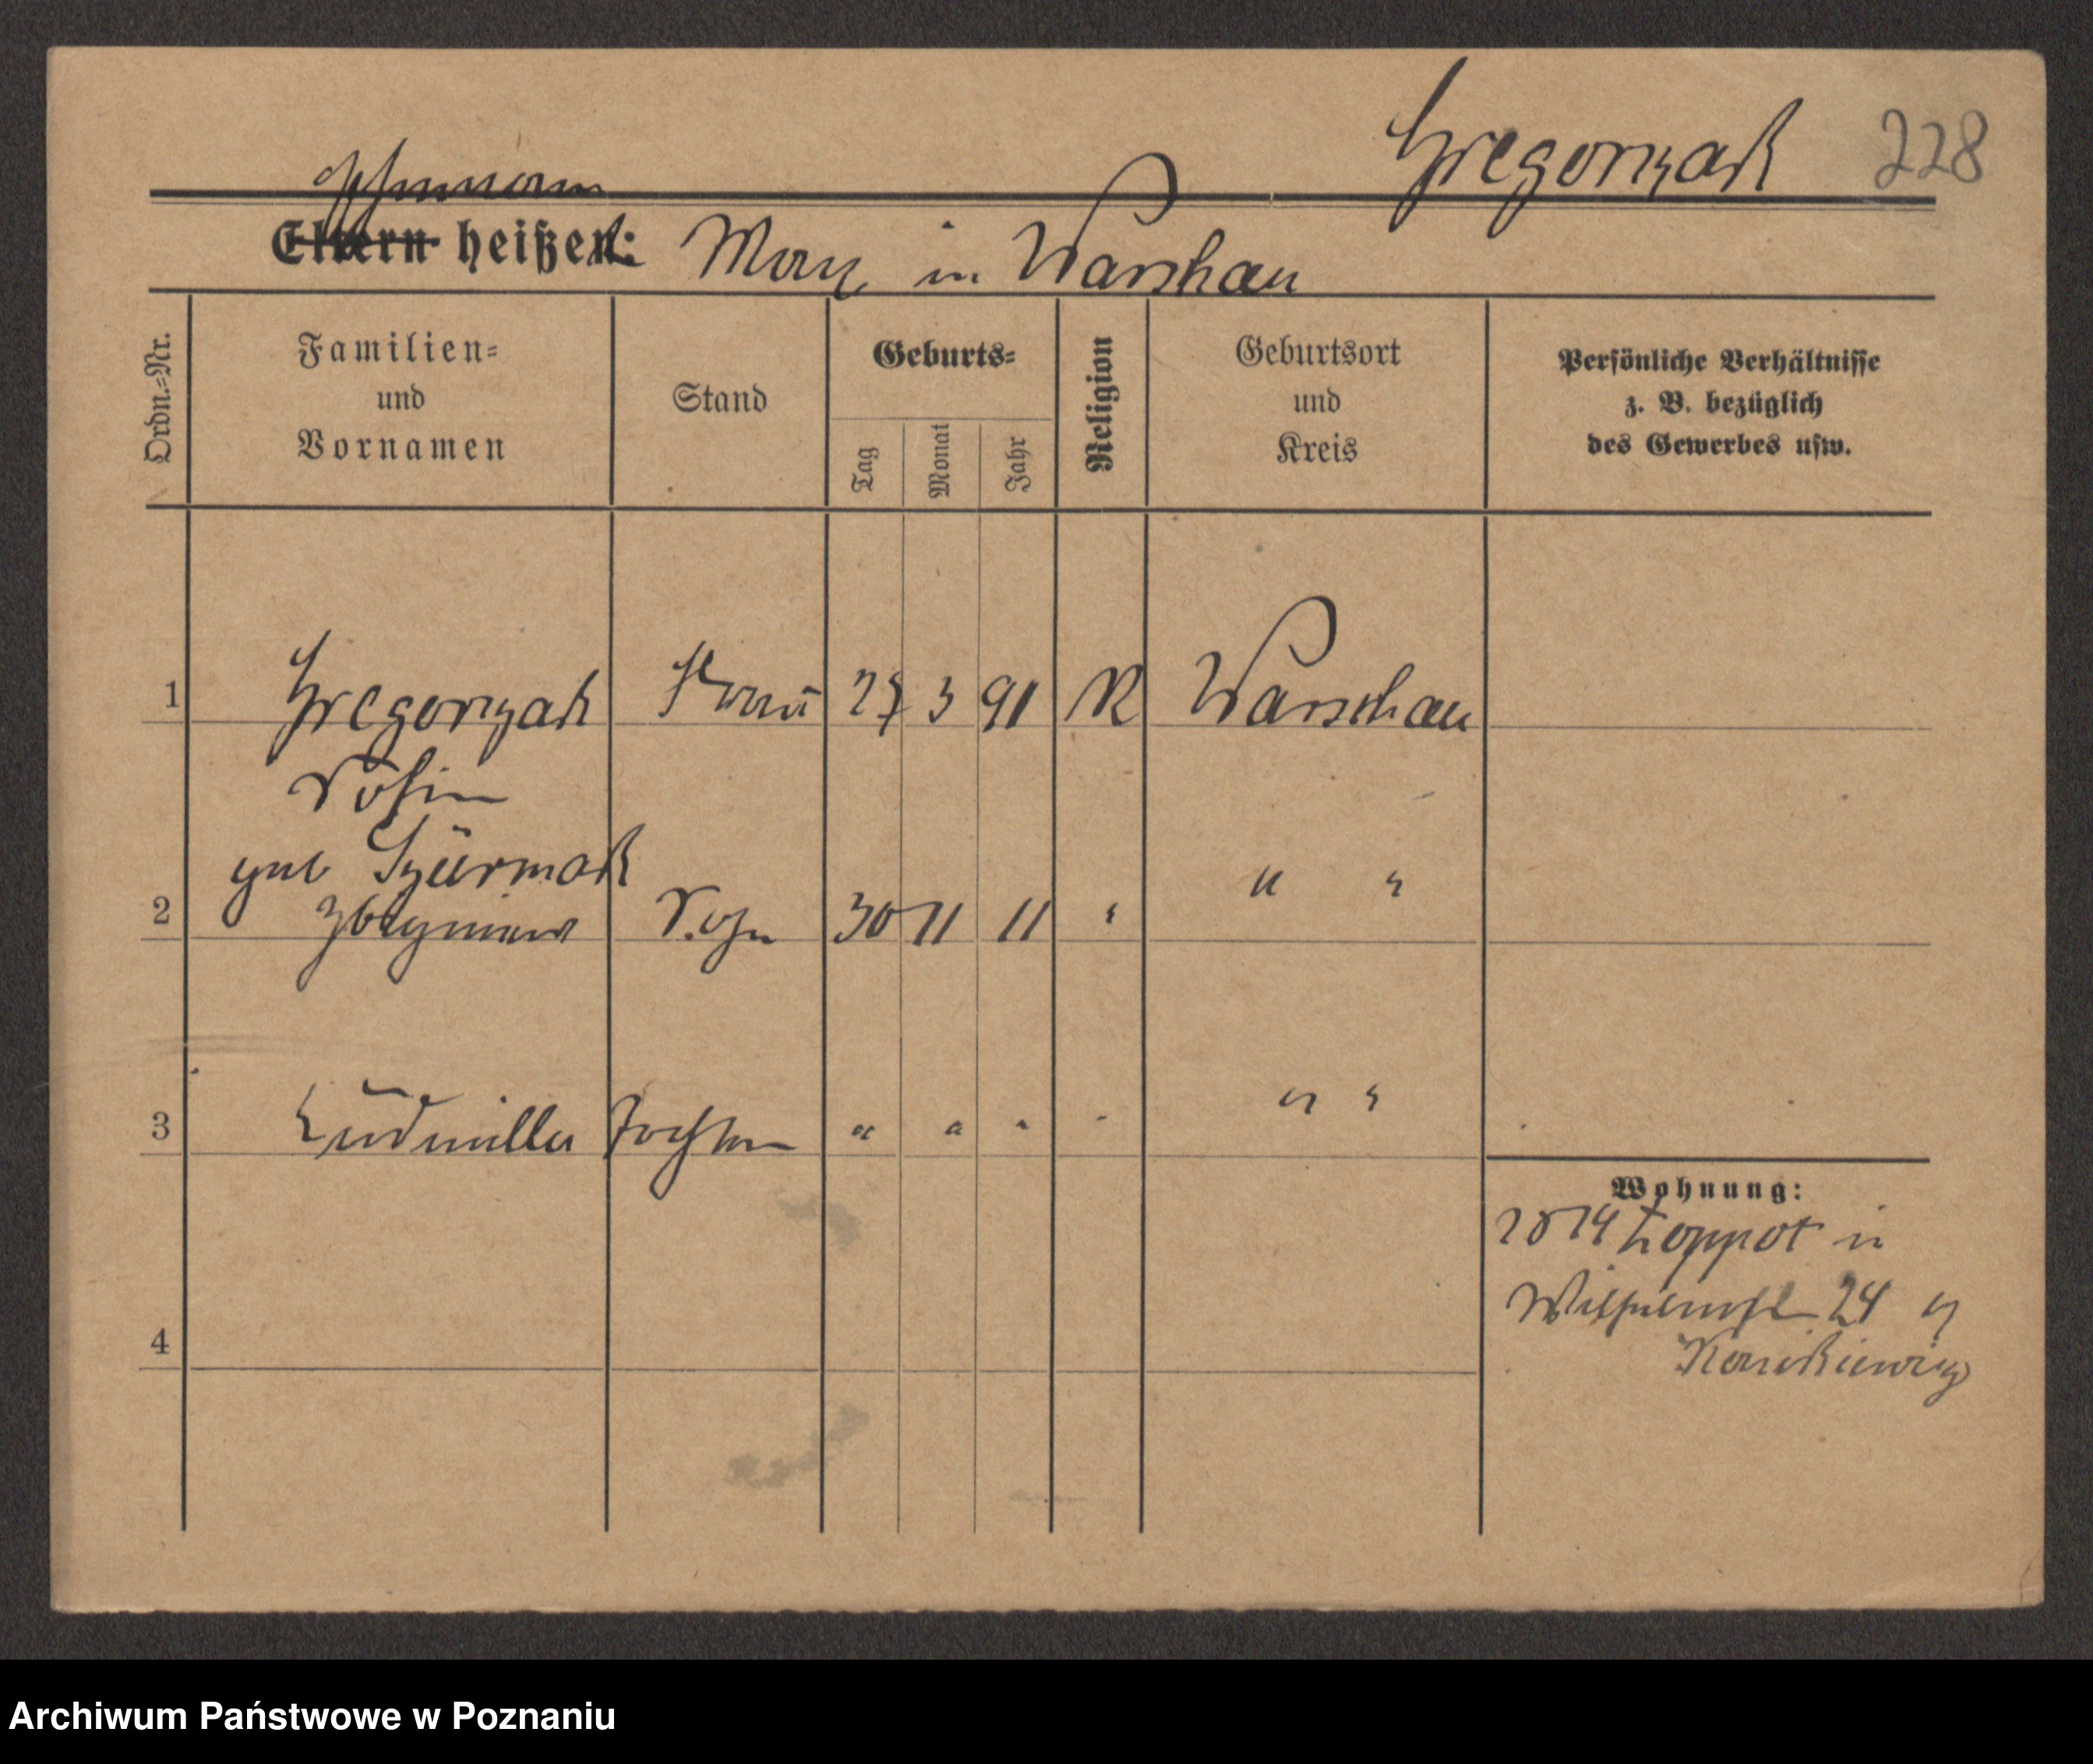 Gregorzak 228
Ehemann
Eltern heißen: Marz in Warshau
Ordn.-Nr.
Familien-
und
Vornamen
Stand
Geburts-
Tag
Monat
Jahr
Religion
Geburtsort
und
Kreis
Persönliche Verhältnisse
z. B. bezüglich
des Gewerbes usw.
1 Gregorzak Frau 27 3 91 K Warschau
Sofin
geb
2 Sohn 30 11 11 " " "
3 Ludmilla Tochter " " " " " "
Wohnung:
Zoppot in
Wilhelmstr 24
4
Archiwum Państwowe w Poznaniu